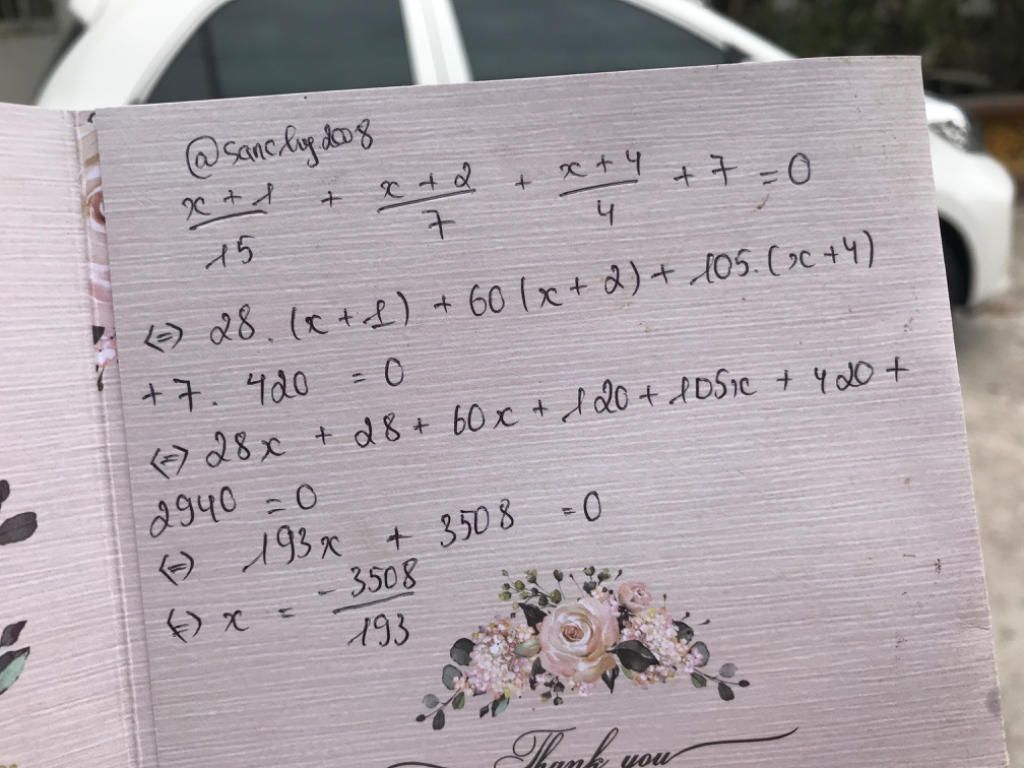 @sanchug2008
x + 1 / 15 + x + 2 / 7 + x + 4 / 4 + 7 = 0
<=> 28. (x + 1) + 60 (x + 2) + 105. (x + 4)
+ 7. 420 = 0
<=> 28x + 28 + 60x + 120 + 105x + 420 +
2940 = 0
<=> 193x + 3508 = 0
<=> x = -3508 / 193
Thank you